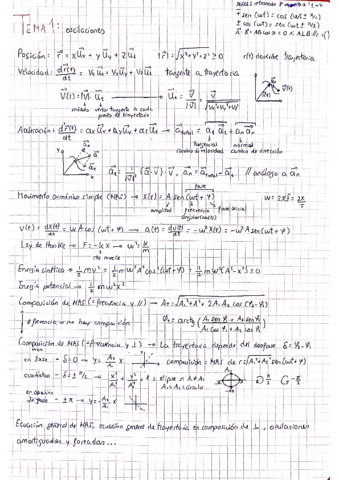 TEMA 1: oscilaciones
± sen (ωt) = cos (ωt ± π/2)
± cos (ωt) = sen (ωt ± π/2)
Posición: r⃗ = x u⃗x + y u⃗y + z u⃗z |r⃗| = √x²+y²+z² ≥ 0 r(t) describe trayectoria
Velocidad: dr⃗(t)/dt = Vx u⃗x + Vy u⃗y + Vz u⃗z tangente a trayectoria
V⃗(t) = |V⃗| · u⃗t
vector tangente a cada
punto de trayectoria
Aceleración: = ax u⃗x + ay u⃗y + az u⃗z → a⃗total = a⃗t + a⃗n
tangencial normal
cambio de velocidad cambio de dirección
a⃗t = 1/|v⃗|² (a⃗ · v⃗) · v⃗, a⃗n = a⃗total − a⃗t // análogo a a⃗n
fase
Movimiento armónico simple (MAS) → x(t) = A sen (ωt + φ) ω = 2πf = 2π/T
amplitud frecuencia fase inicial
v(t) = dx(t)/dt = ω A cos (ωt + φ) → a(t) = dv(t)/dt = −ω² x(t) = −ω² A sen (ωt + φ)
Ley de Hooke → F = −k x → ω² = k/m
Energía cinética → 1/2 m v² = 1/2 m ω² A² cos² (ωt + φ) = 1/2 m ω² (A² − x²) ≥ 0
Energía potencial → 1/2 m ω² x²
Composición de MAS (= frecuencia y //) → AT = √A₁² + A₂² + 2A₁ A₂ cos (φ₂ − φ₁)
≠ frecuencia → no hay composición φT = arctg (A₁ sen φ₁ + A₂ sen φ₂ / A₁ cos φ₁ + A₂ cos φ₂)
Composición de MAS (= frecuencia y ⊥) → La trayectoria depende del desfase δ = φ₂ − φ₁
en fase − δ = 0 → y = A₂/A₁ x composición = MAS de r = √A₁² + A₂² sen (ωt + φ)
cuadratura − δ = ± π/2 → x²/A₁² + y²/A₂² = 1 → elipse si A₁ ≠ A₂
A₁ = A₂ = círculo
en oposición
de fase − ± π → y = −A₂/A₁ x
Ecuación general de MAS, ecuación general de trayectoria en composición de ⊥, oscilaciones
amortiguadas y forzadas...